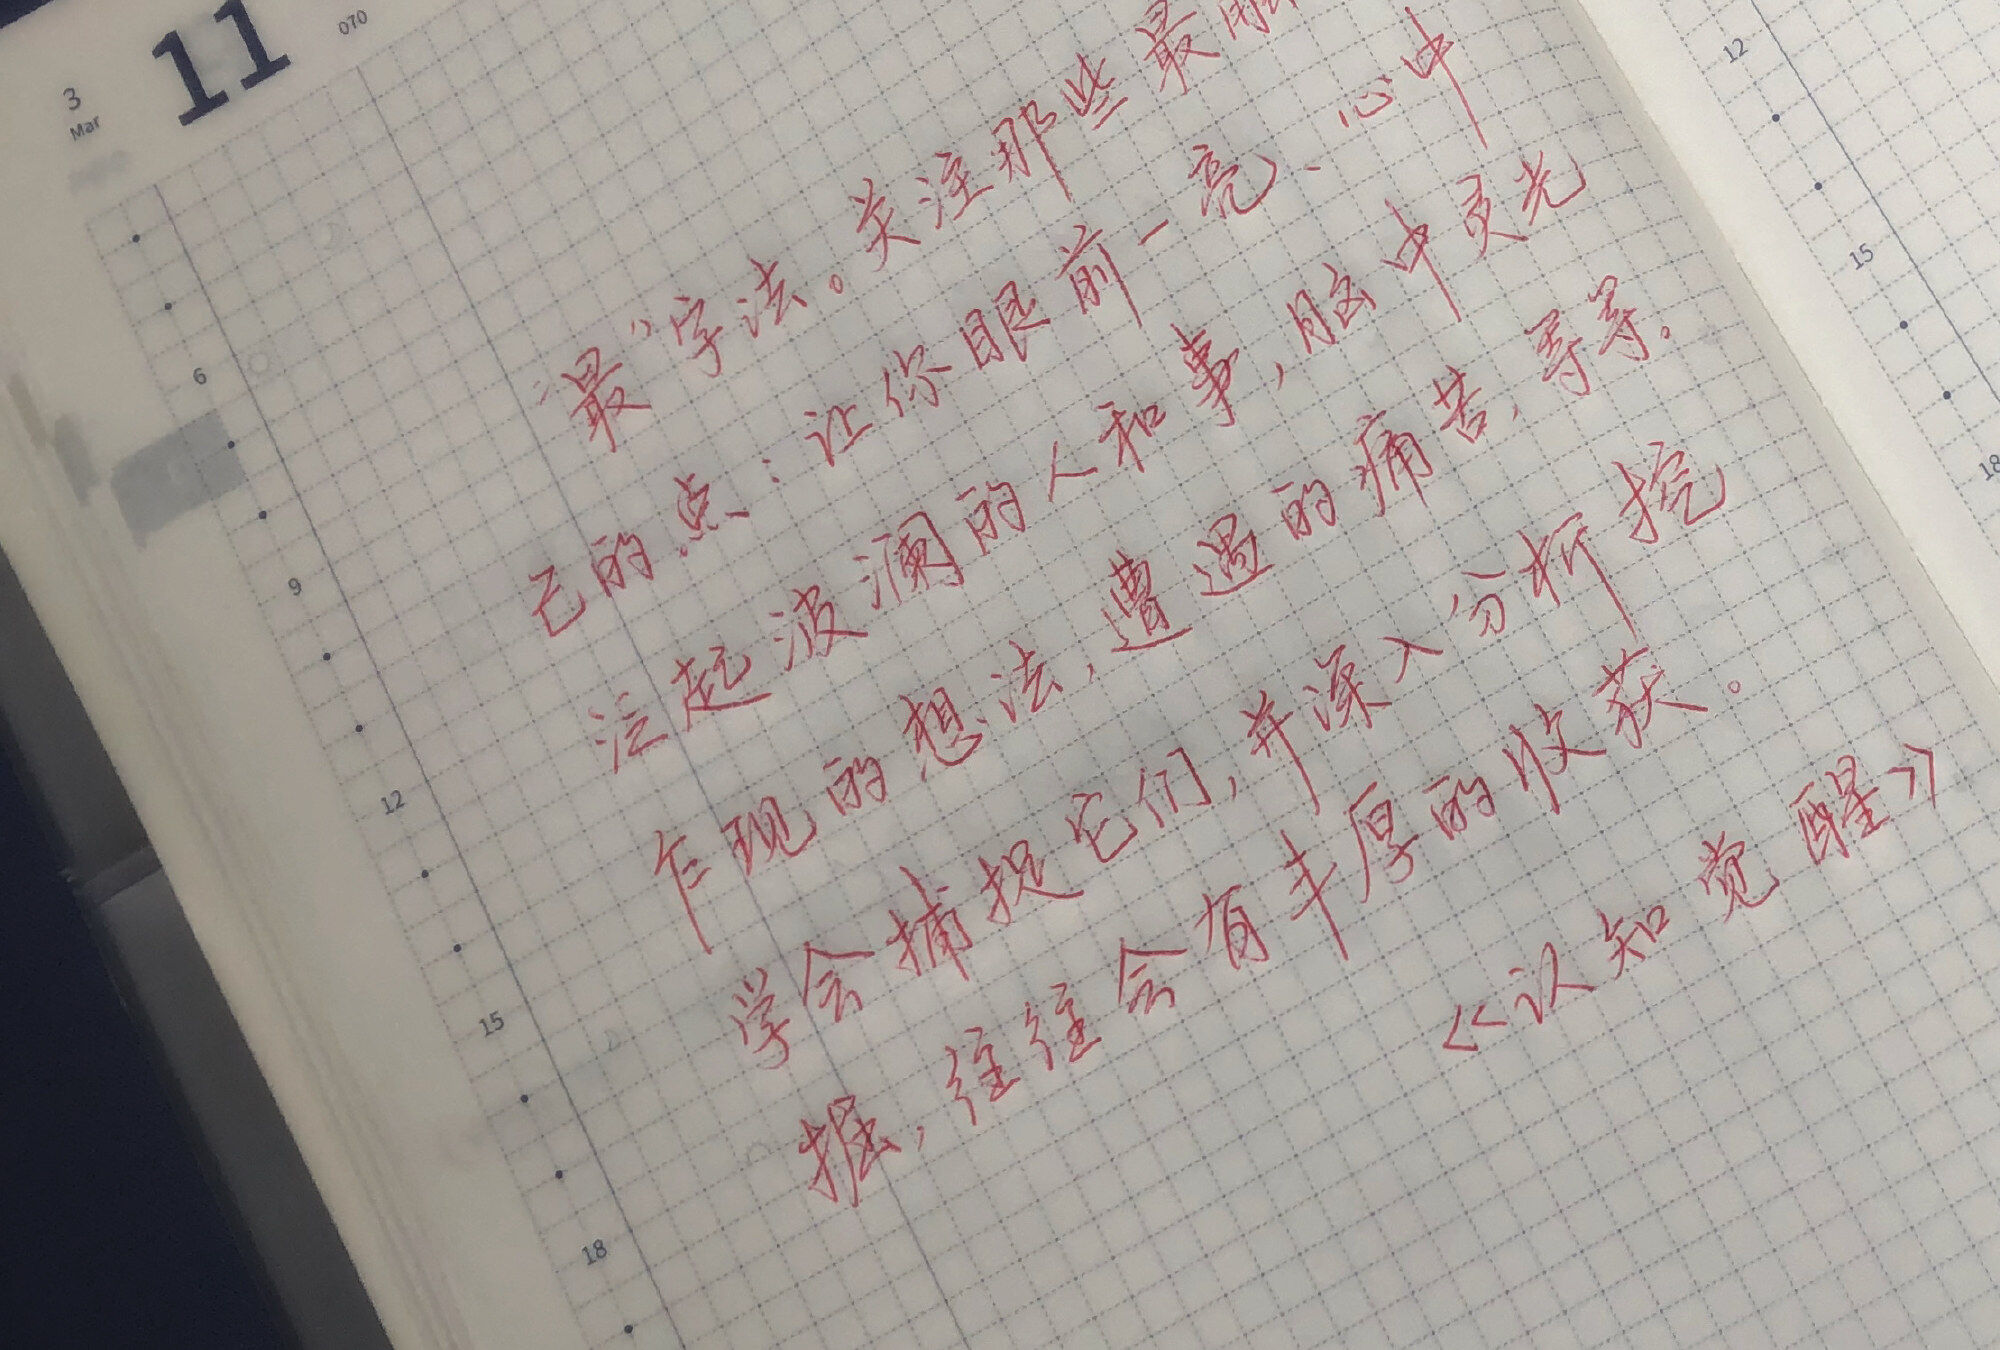 3
Mar
11
070
"最"字法。关注那些最
己的点：让你眼前一亮、心中
泛起波澜的人和事，脑中灵光
乍现的想法，遭遇的痛苦，等等。
学会捕捉它们，并深入分析挖
掘，往往会有丰厚的收获。
《认知觉醒》
6
9
12
15
18
12
15
18